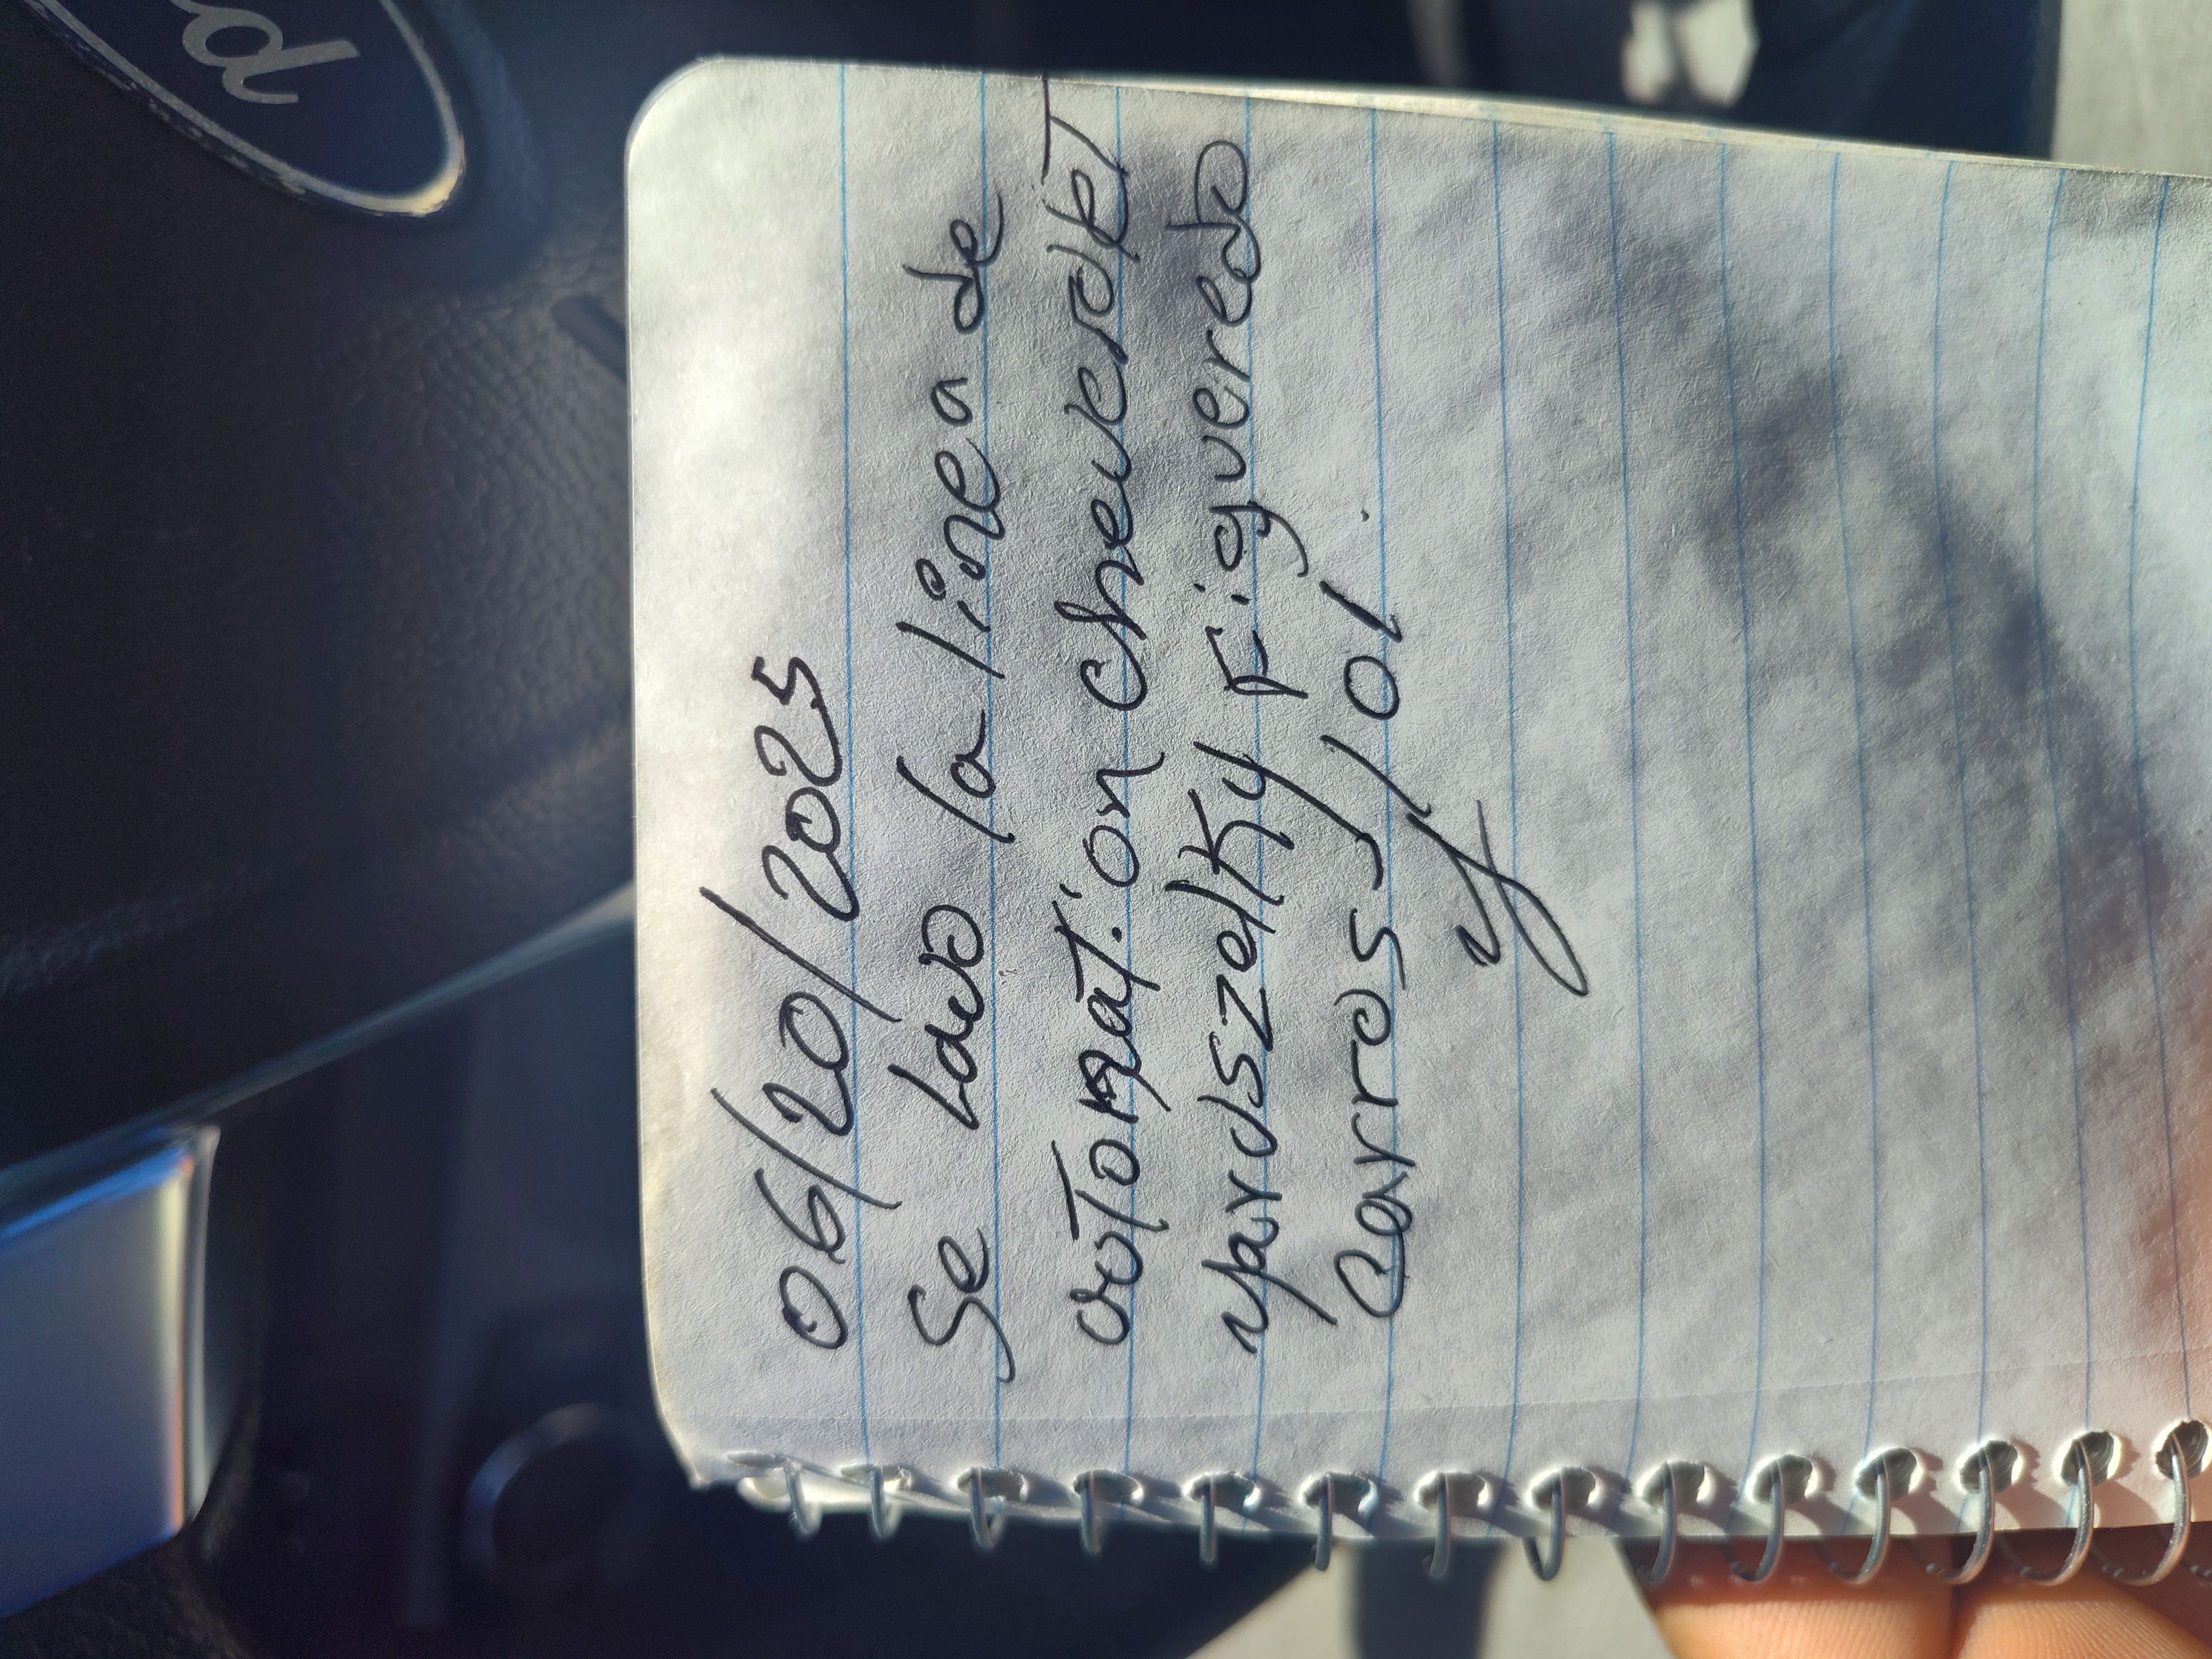 d
06/20/2025
Se Lavo la linea de
automation cheverolet
yardszelky Figueredo
Carros 101